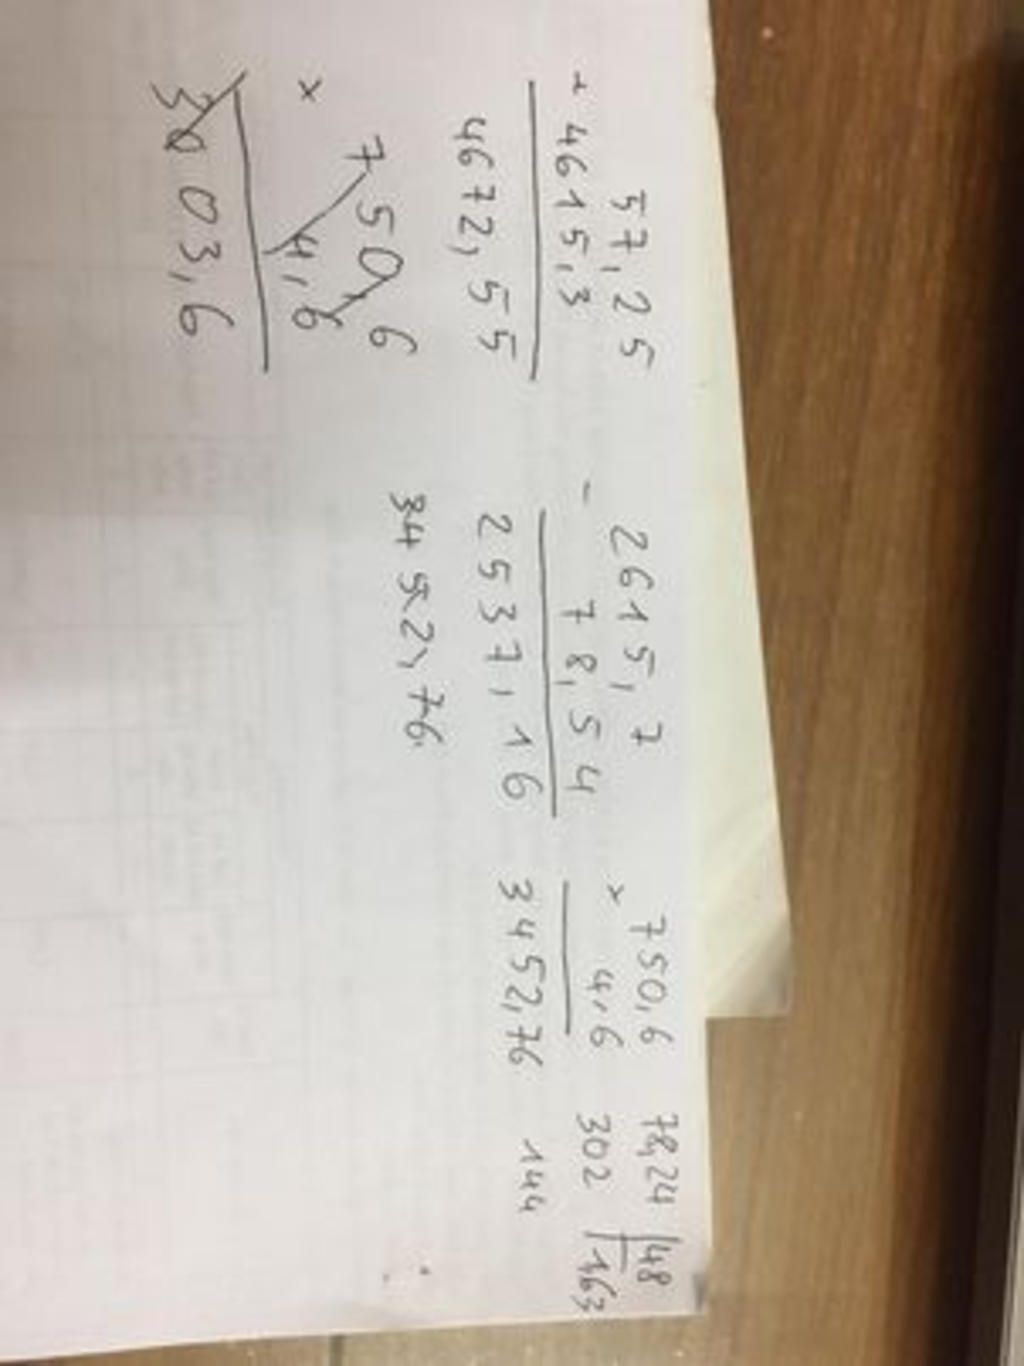 57,25
+ 4615,3
4672,55
2615,7
- 78,54
2537,16
3452,76
750,6
x 4,6
3452,76
78,24 48
302 1,63
144
750,6
x 4,6
3003,6